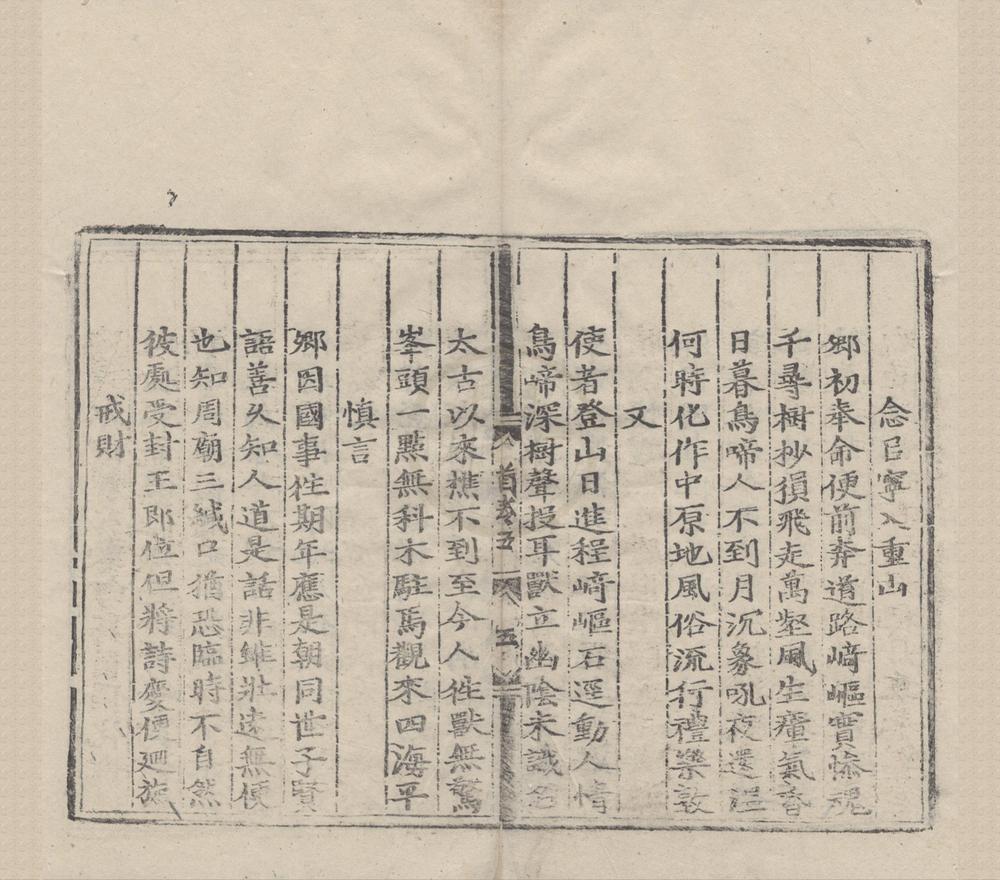 念启寧入重山
郷初奉命便前奔道路崎嶇實慘魂
千尋樹抄猿飛走萬壑風生瘴氣昏
日暮鳥啼人不到月沉象吼夜還
何時化作中原地風俗流行禮樂敦
又
使者登山日進程崎嶇石逕動人情
鳥啼深樹聲投耳獸立幽陰未識名
太古以來樵不到至今人徃獸無驚
峯頭一點無科木駐馬觀來四海平
慎言
郷因國事徃期年應是朝同世子賢
語善久知人道是話非雖壯遠無傳
也知周廟三緘口猶恐臨時不自然
彼處受封王即位但將詩慶便廻旋
戒財
首卷五
五